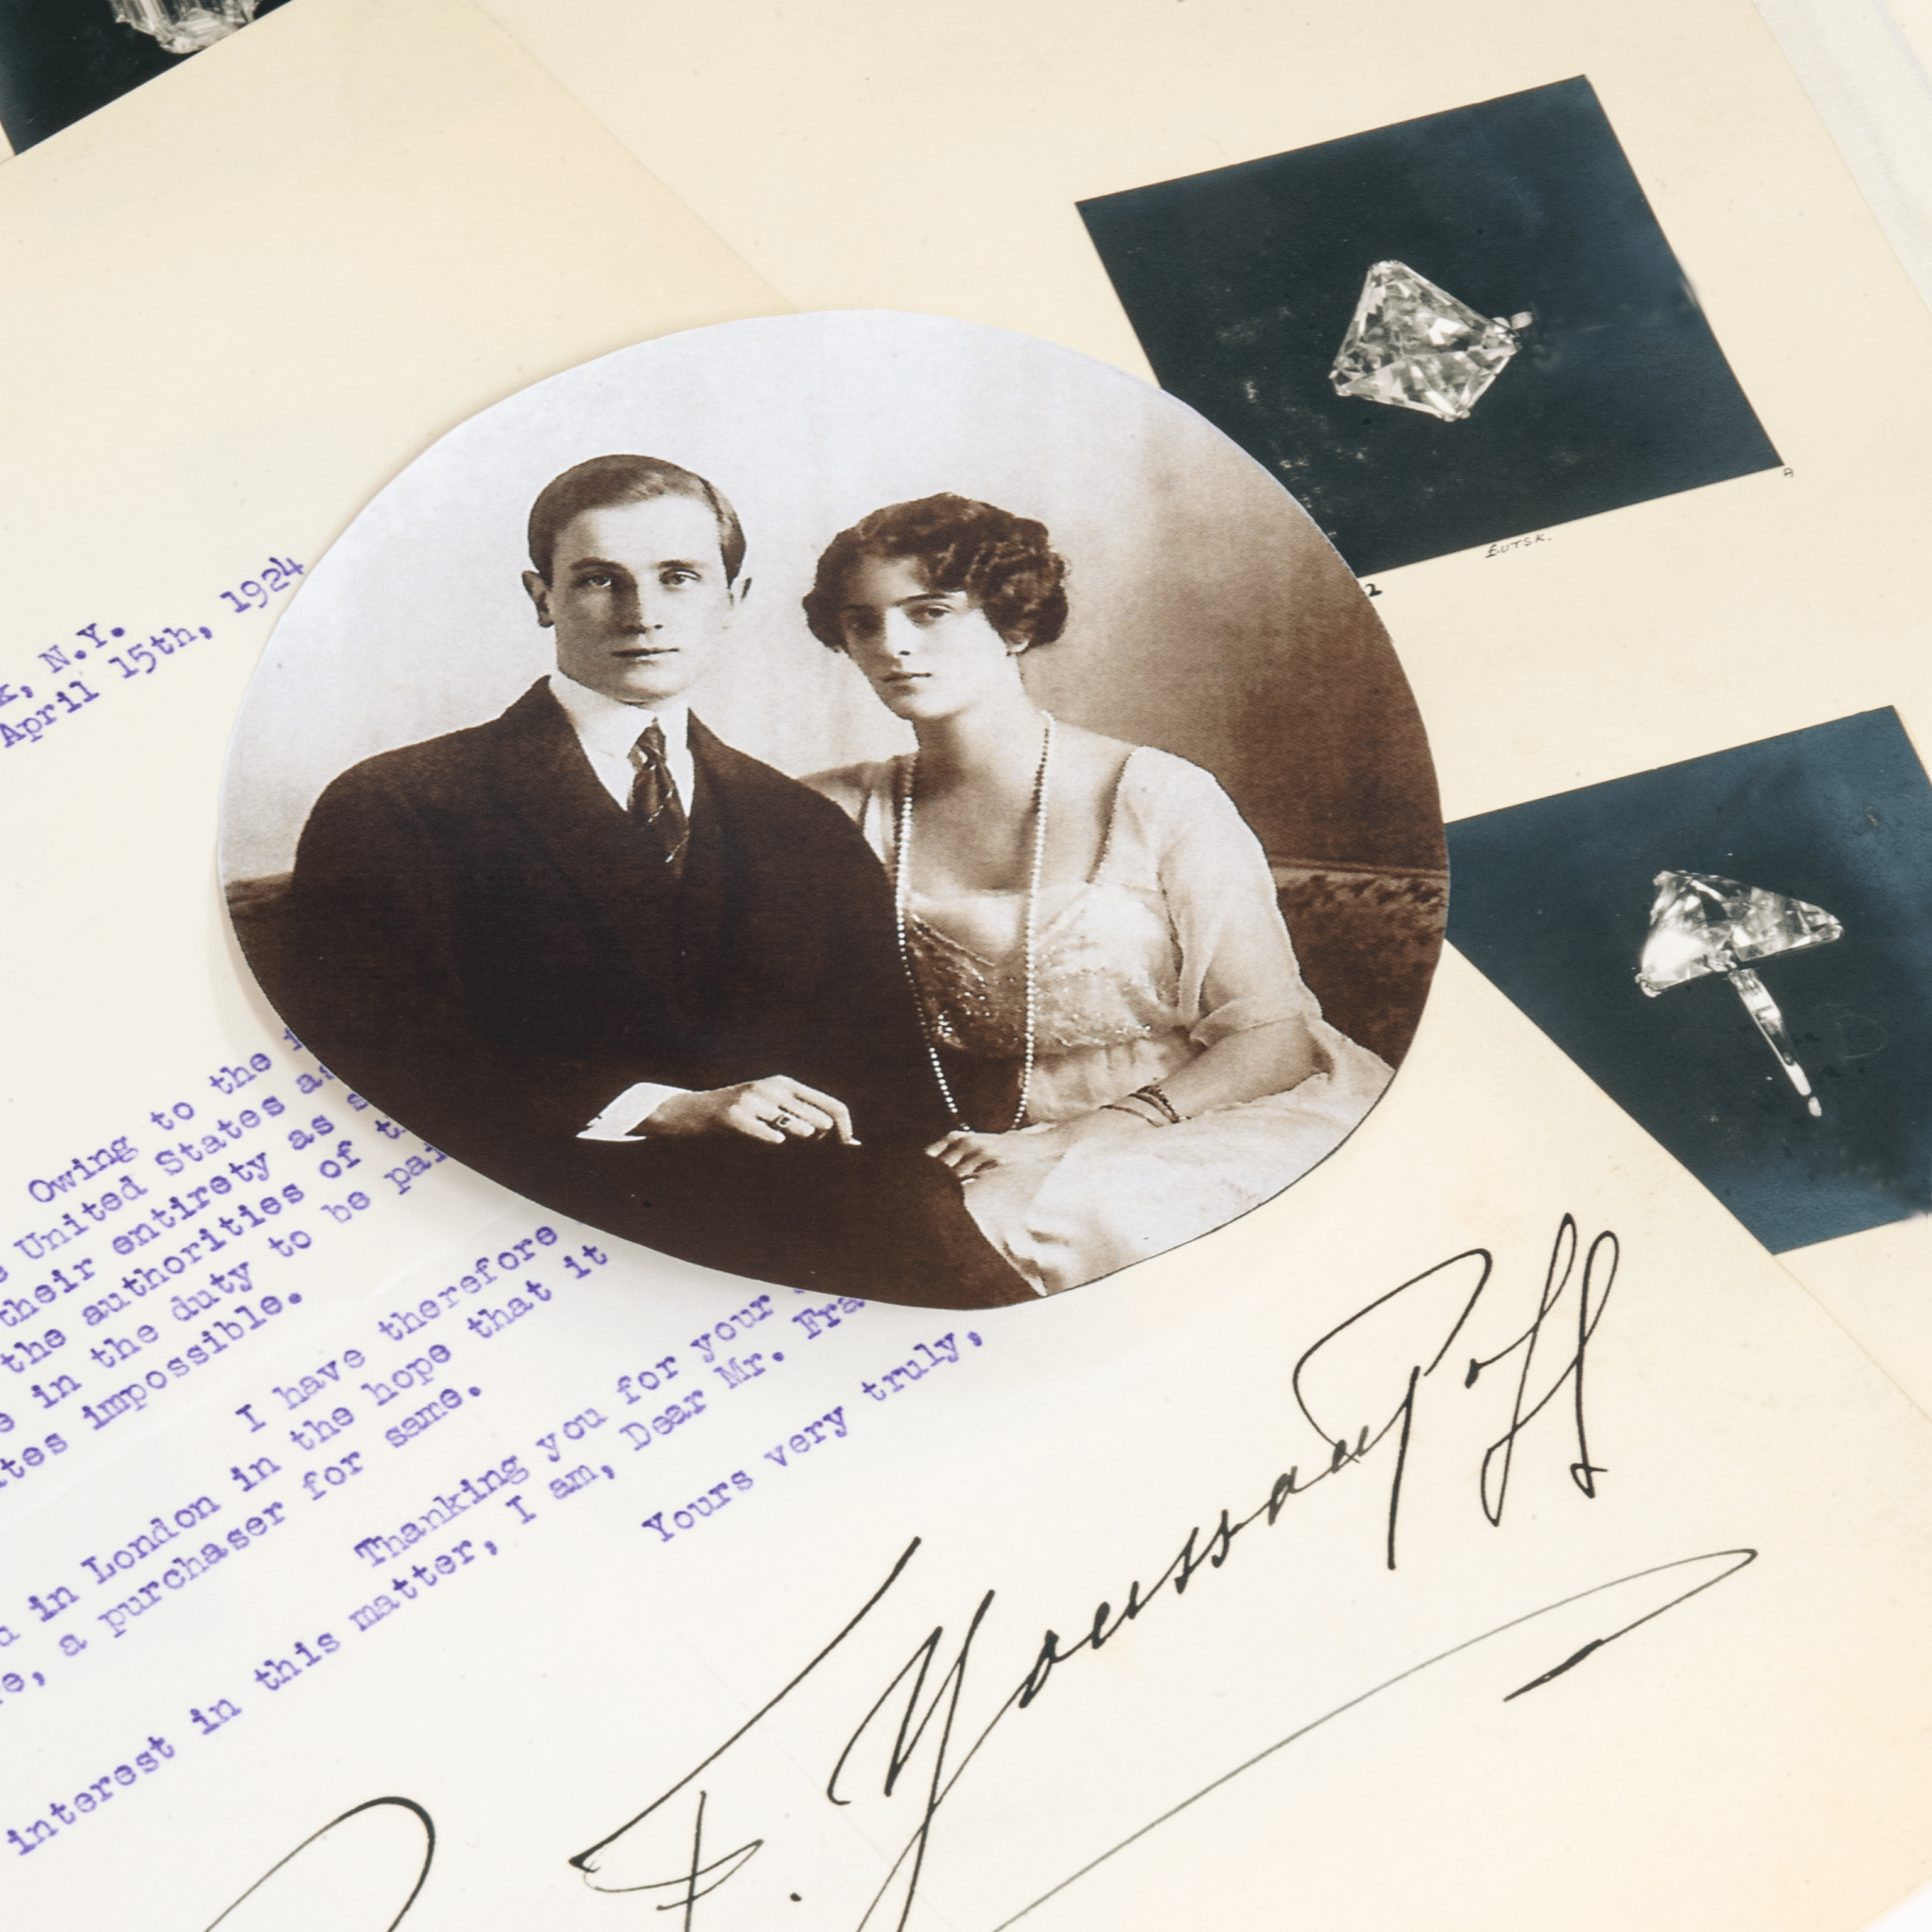 N.Y.
April 15th, 1924
Owing to the
United States
their entirety as
the authorities of
in the duty to be
impossible.
I have therefore
in London in the hope that it
a purchaser for same.
Thanking you for your
interest in this matter, I am, Dear Mr.
Yours very truly,
F. Youssoupoff
2